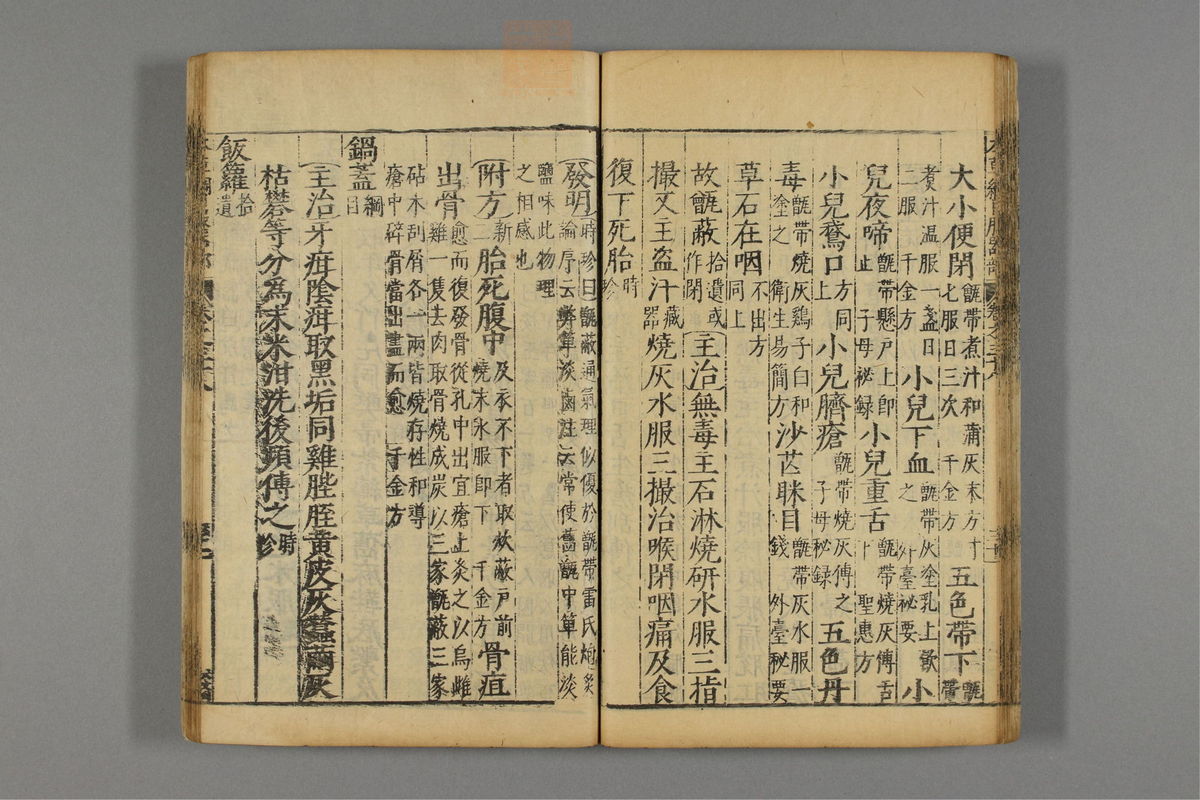 大小便閉甑帶煮汁和蒲灰末方寸七服日三次千金方五色帶下甑帶
煮汁溫服一盞日二服千金方小兒下血甑帶灰塗乳上飲之外臺祕要小
兒夜啼甑帶懸戶上即止子母祕錄小兒重舌甑帶燒灰傅舌下聖惠方
小兒鵞口方同上小兒臍瘡甑帶燒灰傅之子母秘錄五色丹
毒甑帶燒灰鷄子白和塗之衛生易簡方沙芒眯目甑帶灰水服一錢外臺秘要
草石在咽不出方同上
故甑蔽拾遺或作閉主治無毒主石淋燒研水服三指
撮又主盜汗藏器燒灰水服三撮治喉閉咽痛及食
復下死胎時珍
發明時珍曰甑蔽通氣理似優於甑帶雷氏炮炙論序云弊箄淡鹵注云常使舊甑中箄能淡
鹽味此物理之相感也
附方新二胎死腹中及衣不下者取炊蔽戶前燒末水服即下千金方骨疽
出骨愈而復發骨從孔中出宜瘡上灸之以烏雌雞一隻去肉取骨燒成炭以三家甑蔽三家
砧木刮屑各一兩皆燒存性和導瘡中碎骨當出盡而愈千金方
鍋蓋綱目
主治牙疳陰疳取黑垢同雞胜胵黃皮灰蠶繭灰
枯礬等分為末米泔洗後頻傅之時珍
飯籮拾遺